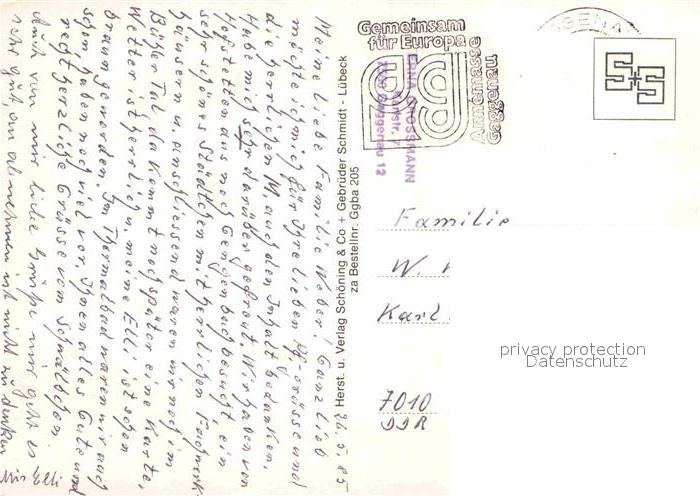 Meine liebe Familie Weber! Ganz lieb
möchte ich mich für Ihre lieben Pf-Grüsse und
die herrlichen M. auch den Inhalt bedanken.
Habe mich sehr darüber gefreut Wir haben von
Hofstetten aus noch Gengenbach besucht, ein
sehr schönes Städtchen mit herrlichen Fachwerk-
häusern u. anschliessend waren wir noch im
Bühler Tal, da kommt noch später eine Karte,
Wetter ist herrlich, meine Elli ist schon
braun geworden. Im Thermalbad waren wir auch
schon, haben noch viel vor. Ihnen alles Gute und
recht herzliche Grüsse vom Schwälbchen.
Auch von mir liebe Grüße mir geht es
sehr gut, an abnehmen ist nicht zu denken
Elli
26.5.85
Herst. u. Verlag Schöning & Co + Gebrüder Schmidt - Lübeck
za Bestellnr. Ggba 205
Gemeinsam
für Europa
Annemasse
Gaggenau
GGENA
ERNA GROSSMANN
Gaggenau 12
Familie
W.
Karl
7010
DDR
privacy protection
Datenschutz